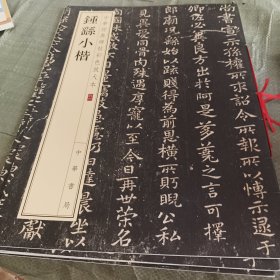 鍾繇小楷
中華書局
尚書宣示孫權所求詔令所報所以博示逮于
卿佐必冀良方出於阿是芻蕘之言可擇
郎廟況繇始以疏賤得為前恩橫所眄睨公私
見異愛同骨肉殊遇厚寵以至今日再世榮名
日達晨坐以
獻